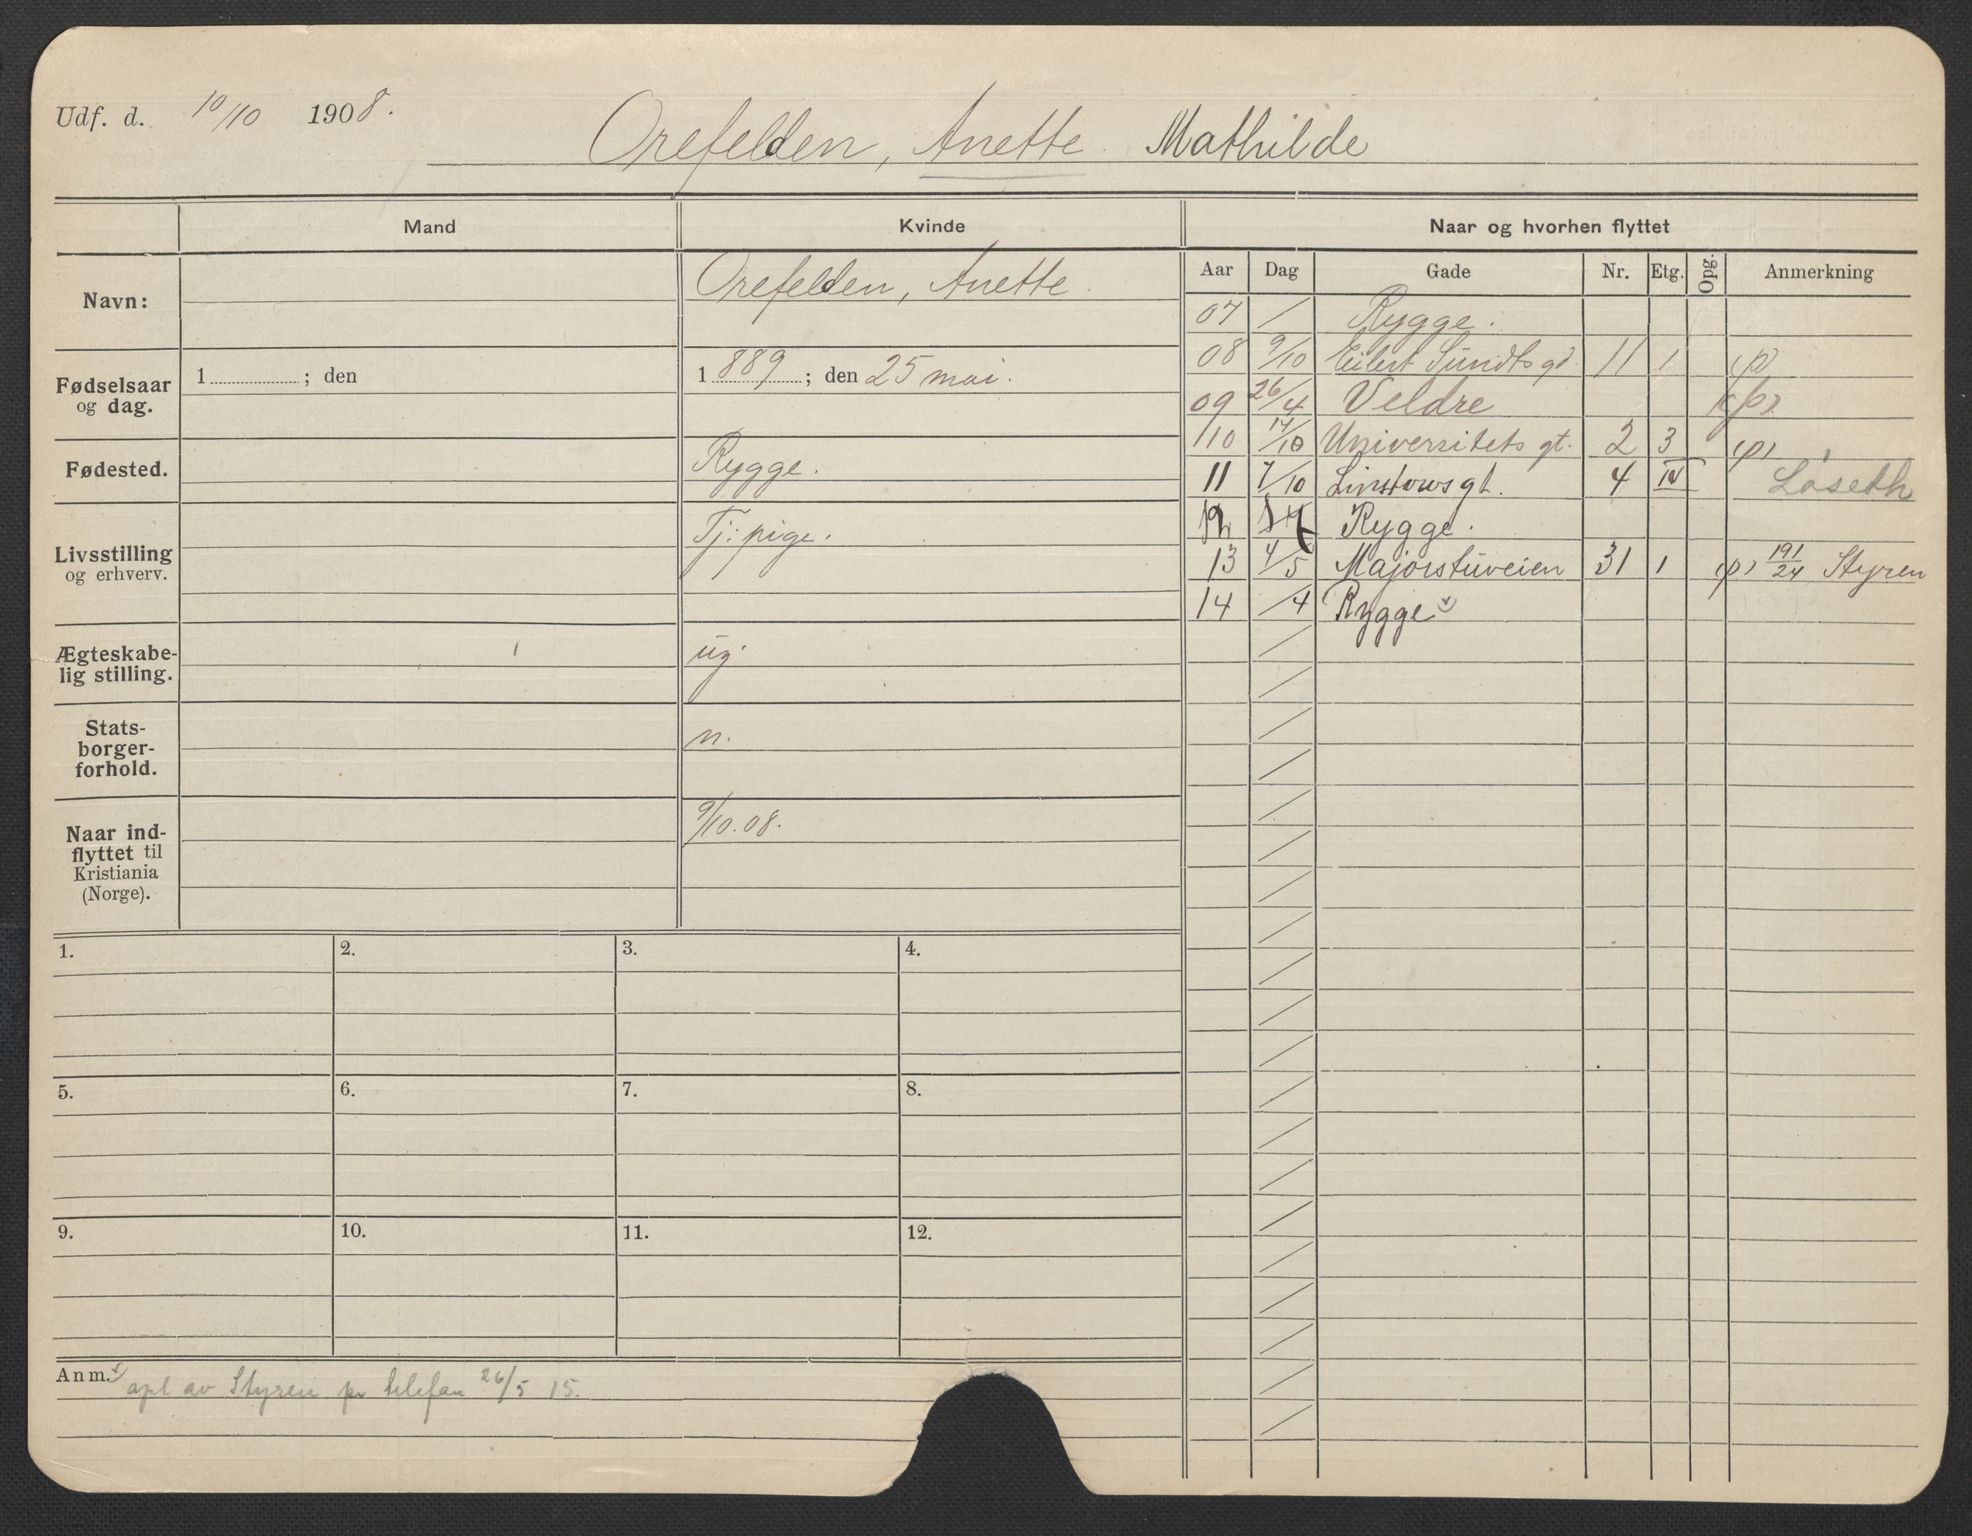 Udf. d. 10/10 1908.
Orefelden, Anette Mathilde
Mand
Kvinde
Naar og hvorhen flyttet
Navn:
Orefelden, Anette.
Fødselsaar
og dag.
1 ; den
1889 ; den 25 mai.
Fødested.
Rygge.
Livsstilling
og erhverv.
Tj: pige.
Ægteskabe-
lig stilling.
ug.
Stats-
borger-
forhold.
n.
Naar ind-
flyttet til
Kristiania
(Norge).
9/10.08.
Aar Dag Gade Nr. Etg. Opg. Anmerkning
07 / Rygge.
08 9/10 Eilert Sundts gd. 11 1 (p)
09 26/4 Veldre (p)
10 14/10 Universitets gt. 2 3 (p)
11 7/10 Linstows gt. 4 IV Løseth
12 Rygge.
13 4/5 Majorstuveien 31 1 (p) 191/24 Styren
14 /4 Rygge x)
1. 2. 3. 4.
5. 6. 7. 8.
9. 10. 11. 12.
Anm. x) opl av Styren pr telefan 26/5 15.